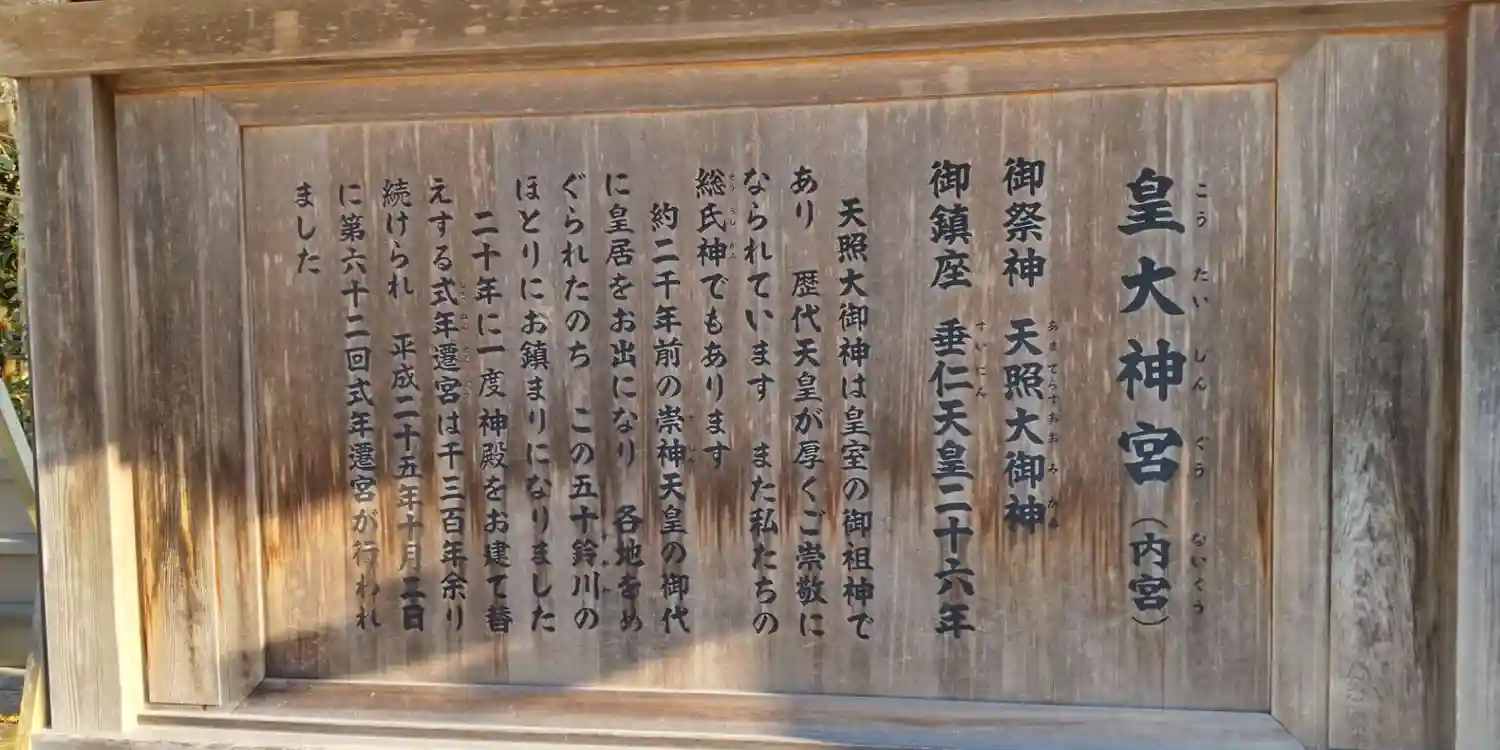 皇大神宮（内宮）
こうたいじんぐう ないくう
御祭神 天照大御神
あまてらすおおみかみ
御鎮座 垂仁天皇二十六年
すいにん
天照大御神は皇室の御祖神で
あり 歴代天皇が厚くご崇敬に
なられています また私たちの
総氏神でもあります
そううじがみ
約二千年前の崇神天皇の御代
すじん
に皇居をお出になり 各地をめ
ぐられたのち この五十鈴川の
ほとりにお鎮まりになりました
二十年に一度神殿をお建て替
えする式年遷宮は千三百年余り
しきねんせんぐう
続けられ 平成二十五年十月二日
に第六十二回式年遷宮が行われ
ました